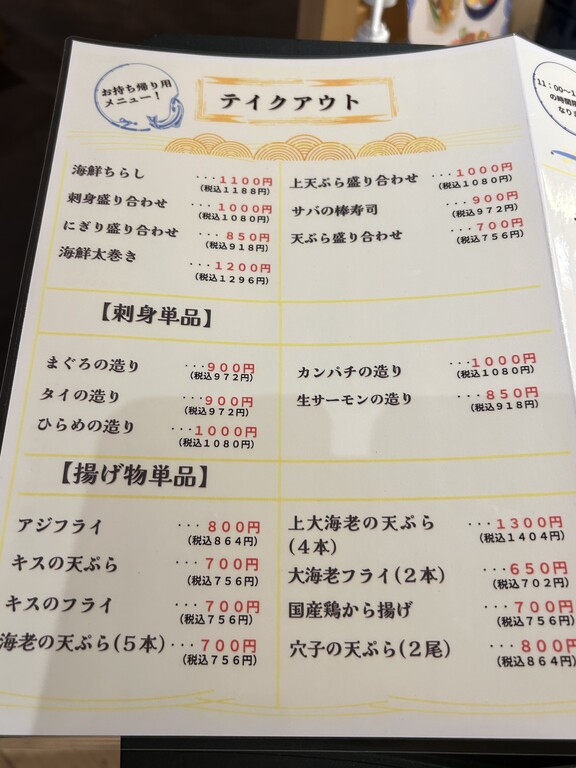 お持ち帰り用
メニュー！
テイクアウト
11：00～1
の時間
なり
海鮮ちらし ・・・1100円
（税込1188円）
刺身盛り合わせ ・・・1000円
（税込1080円）
にぎり盛り合わせ ・・・850円
（税込918円）
海鮮太巻き ・・・1200円
（税込1296円）
上天ぷら盛り合わせ ・・・1000円
（税込1080円）
サバの棒寿司 ・・・900円
（税込972円）
天ぷら盛り合わせ ・・・700円
（税込756円）
【刺身単品】
まぐろの造り ・・・900円
（税込972円）
タイの造り ・・・900円
（税込972円）
ひらめの造り ・・・1000円
（税込1080円）
カンパチの造り ・・・1000円
（税込1080円）
生サーモンの造り ・・・850円
（税込918円）
【揚げ物単品】
アジフライ ・・・800円
（税込864円）
キスの天ぷら ・・・700円
（税込756円）
キスのフライ ・・・700円
（税込756円）
海老の天ぷら(5本) ・・・700円
（税込756円）
上大海老の天ぷら ・・・1300円
(4本) （税込1404円）
大海老フライ(2本) ・・・650円
（税込702円）
国産鶏から揚げ ・・・700円
（税込756円）
穴子の天ぷら(2尾) ・・・800円
（税込864円）